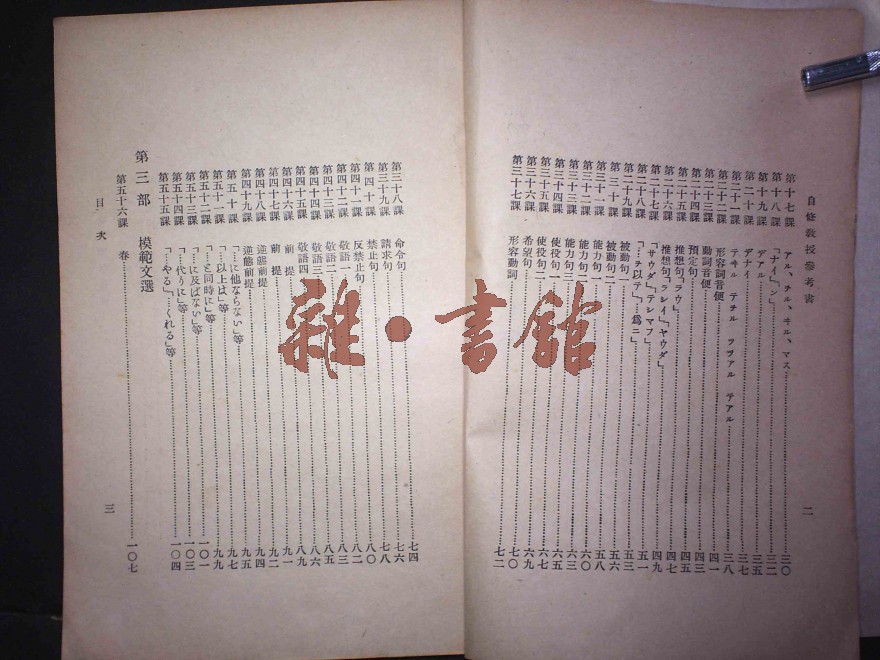 自修教授參考書
二
第十七課 アル、チル、キル、マス 三〇
第十八課 「ナイ」「ン」 三二
第十九課 デアル 三五
第二十課 デナイ 三七
第二十一課 テキル テチル ツヅアル テアル 三八
第二十二課 形容詞音便 四一
第二十三課 動詞音便 四三
第二十四課 預定句 四五
第二十五課 推想句「ラウ」 四七
第二十六課 推想句「ラシイ」「ヤウダ」 四九
第二十七課 「サウダ」「テシマフ」 五一
第二十八課 「…ヲ以テ」「…爲ニ」 五三
第二十九課 被動句一 五六
第三十課 被動句二 五八
第三十一課 能力句一 六〇
第三十二課 能力句二 六三
第三十三課 能力句三 六五
第三十四課 使役句一 六六
第三十五課 使役句二 六七
第三十六課 希望句 六九
第三十七課 形容動詞 七〇
七二
第三十八課 命令句 七四
第三十九課 請求句 七六
第四十課 禁止句 七八
第四十一課 反禁止句 八〇
第四十二課 敬語一 八二
第四十三課 敬語二 八三
第四十四課 敬語三 八五
第四十五課 敬語四 八六
第四十六課 前提 八九
第四十七課 前提 九一
第四十八課 逆態前提 九二
第四十九課 逆態前提 九四
第五十課 「…に他ならない」等 九五
第五十一課 「…以上は」等 九七
第五十二課 「…と同時に」等 九九
第五十三課 「…に及ばない」等 一〇一
第五十四課 「…代りに」等 一〇三
第五十五課 「…やる」「くれる」等 一〇四
第三部 模範文選
第五十六課 春 一〇七
目次
三
雜·書舘